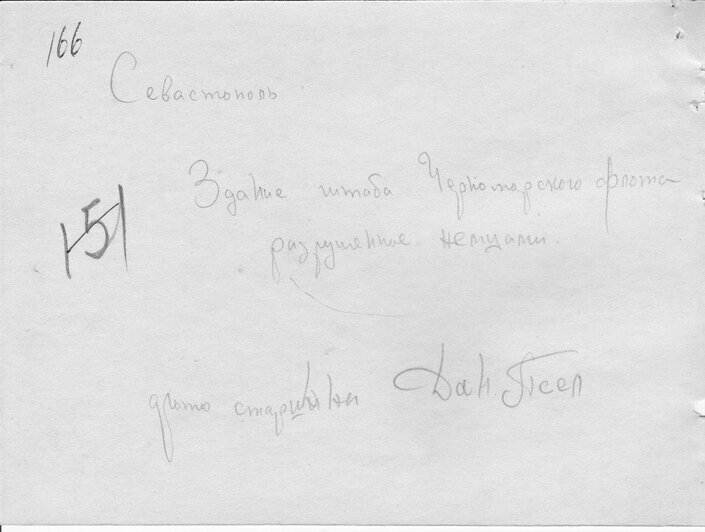 166
Севастополь
Здание штаба Черноморского флота
151
разрушенное немцами.
фото старшины Дан. Псел